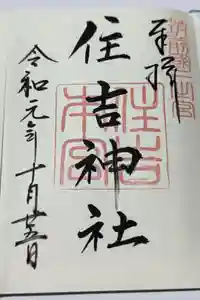 奉拝
住吉神社
住吉
本宮
令和元年十月廿五日